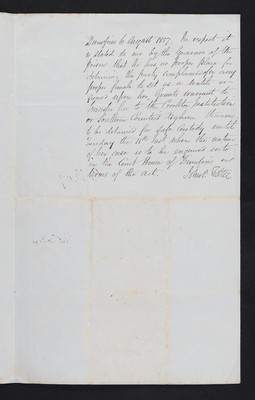 Dumfries 6 August 1857. In respect it
is stated to me by the Governor of the
prison that he has no proper place for
detaining the party complained of or any
proper female to act as a
upon her, Grants warrant to
transfer her to the Crichton Institution
or Southern Counties Asylum
to be detained for safe custody until
Tuesday the 11th inst when the
of her case is to be enquired into
in the Court House of Dumfries in
terms of the act.